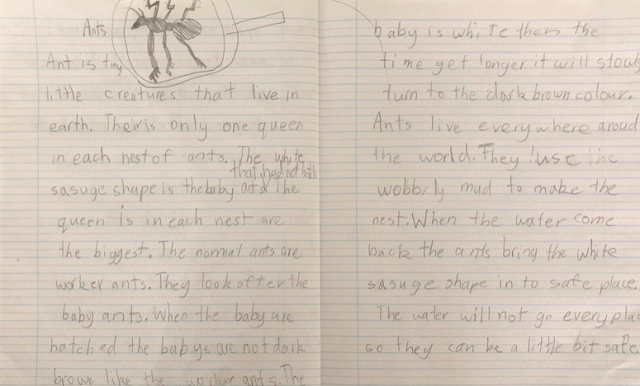 Ants
Ant is tiny
little creatures that live in
earth. Their is only one queen
in each nest of ants. The white
that had not hach
sasuge shape is the baby ants. The
queen is in each nest are
the biggest. The normal ants are
worker ants. They look after the
baby ants. When the baby are
hatched the babys are not dark
brown like the worker ants. The
baby is white then the
time get longer it will slowly
turn to the dark brown colour.
Ants live everywhere aroud
the world. They use the
wobbrly mud to make the
nest. When the water come
back the ants bring the white
sasuge shape in to safe place.
The water will not go every pla
so they can be a little bit safe